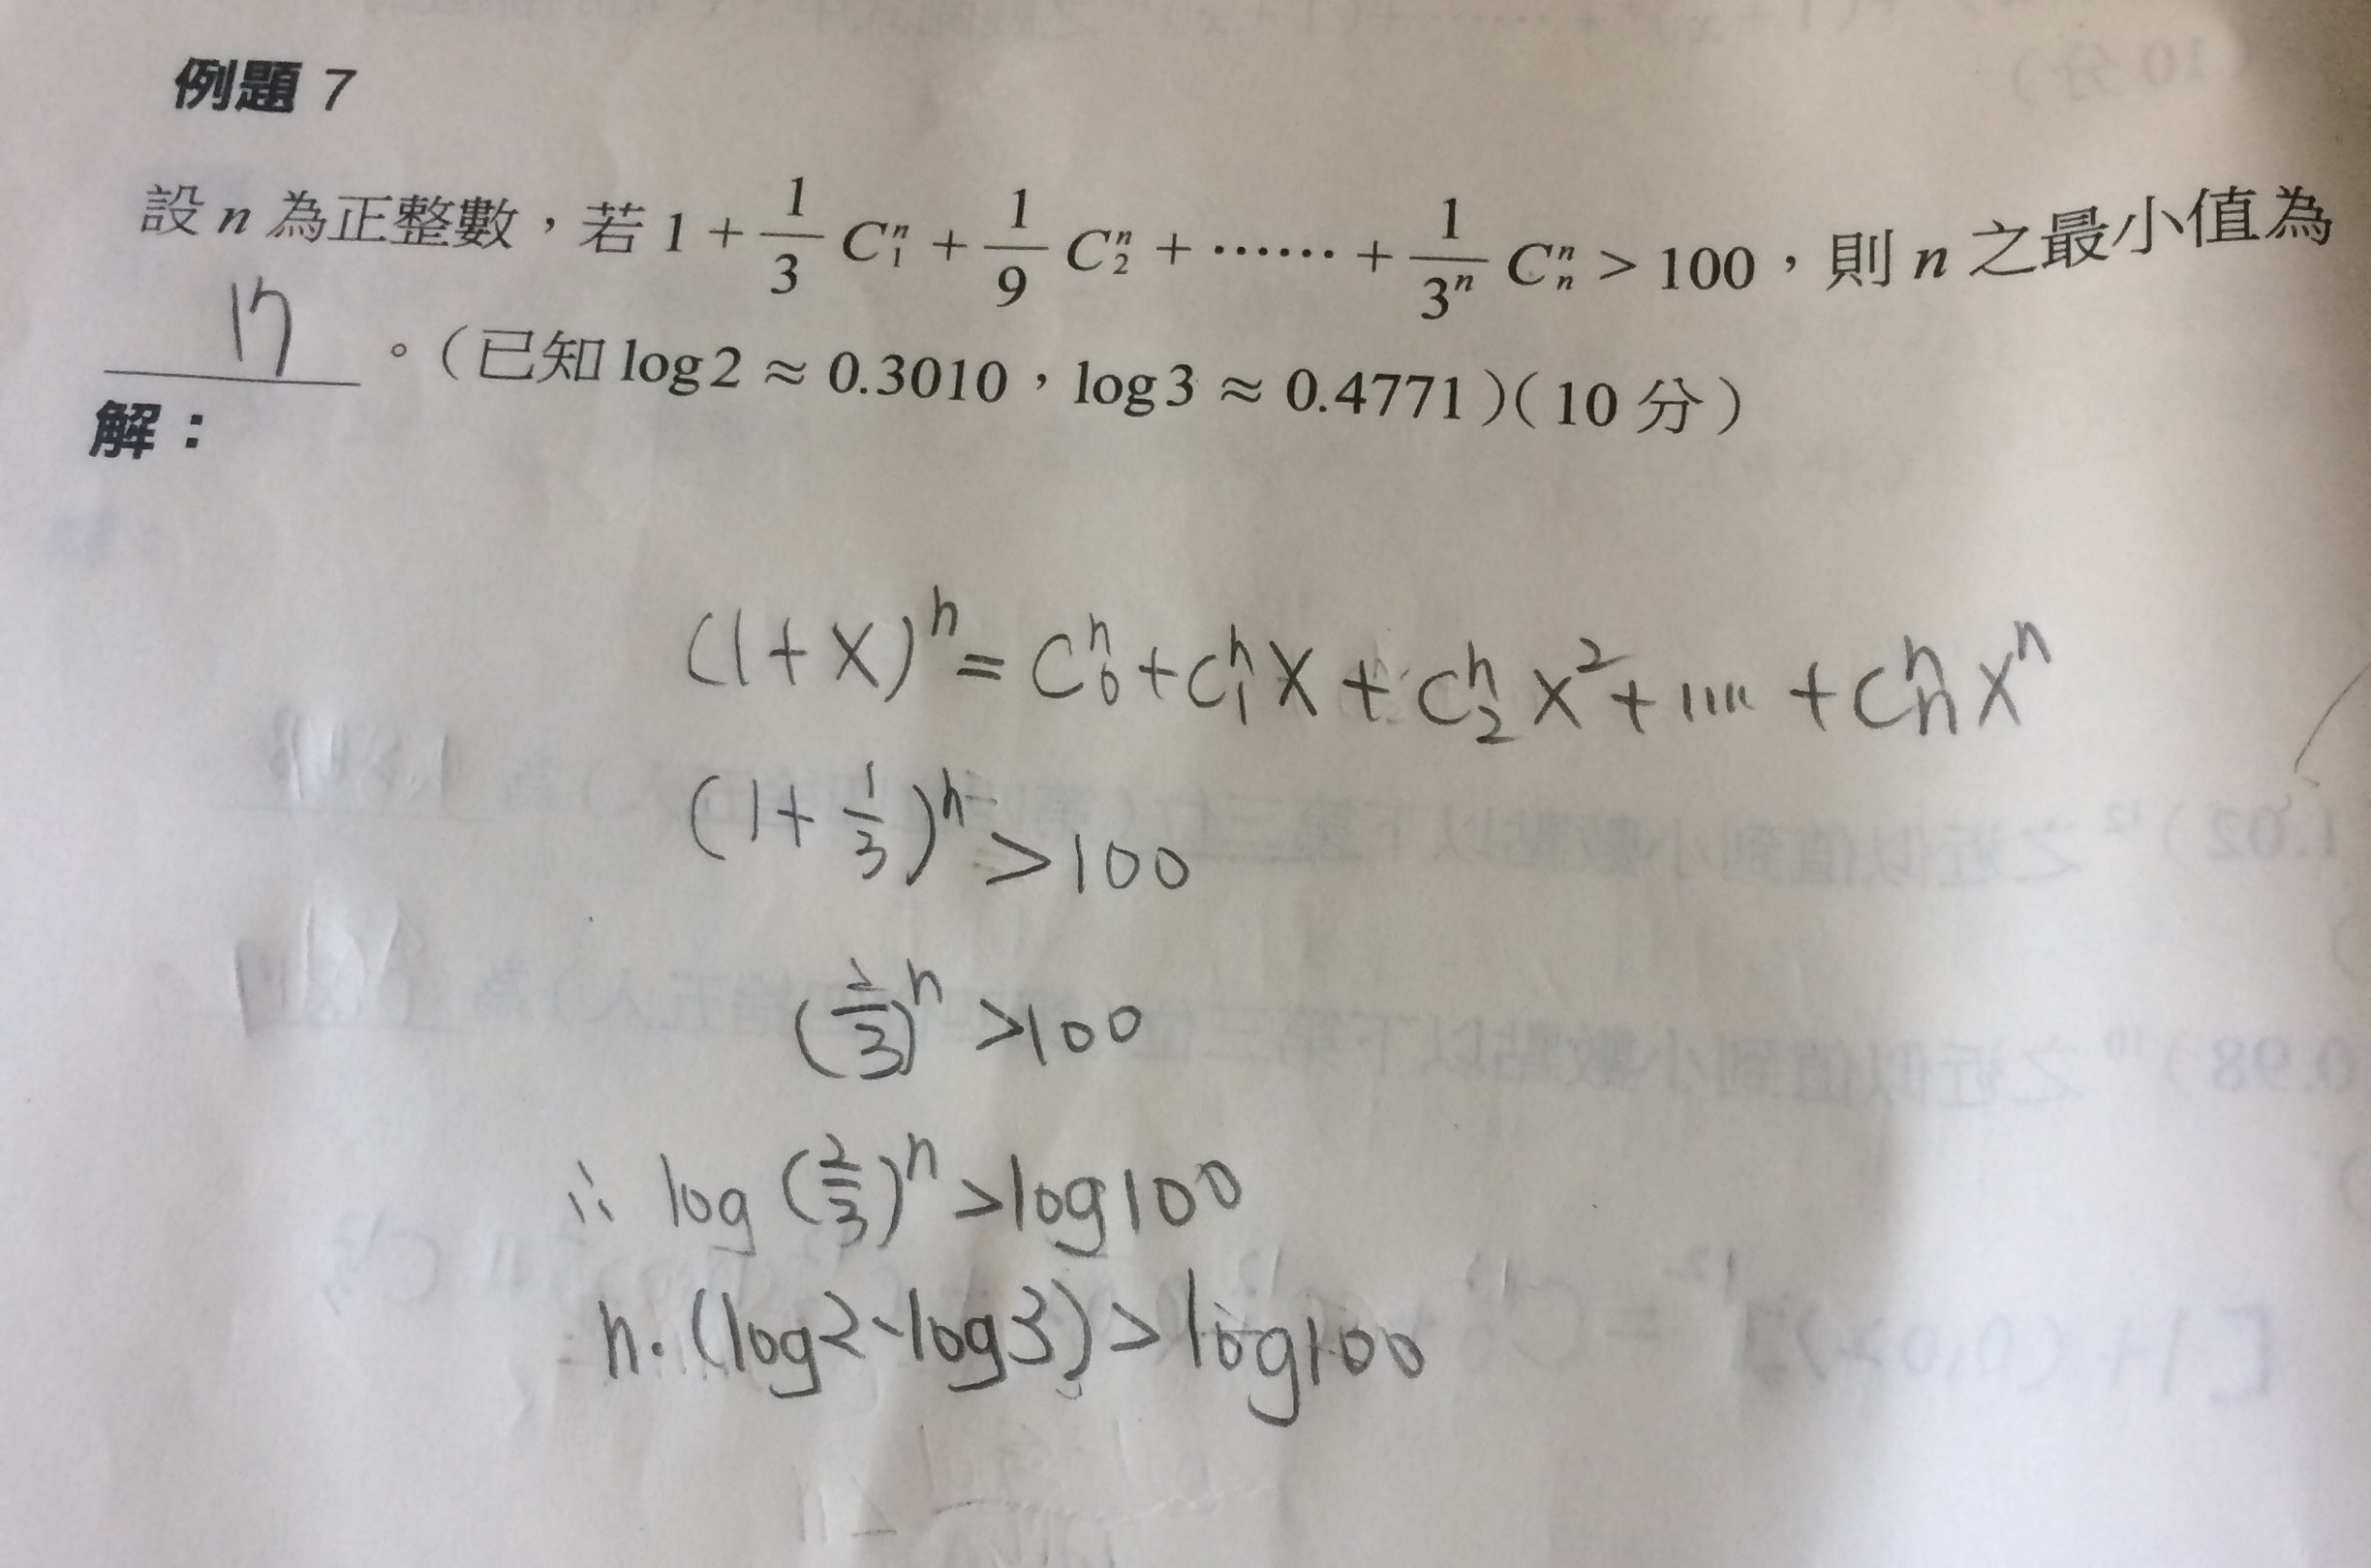 例題 7
設 n 為正整數，若 1 + 1/3 C₁ⁿ + 1/9 C₂ⁿ + …… + 1/3ⁿ Cₙⁿ > 100，則 n 之最小值為
17。（已知 log2 ≈ 0.3010，log3 ≈ 0.4771）（10 分）
解：
(1+X)ⁿ = C₀ⁿ + C₁ⁿX + C₂ⁿX² + ⋯ + CₙⁿXⁿ
(1 + 1/3)ⁿ > 100
(2/3)ⁿ > 100
∴ log (2/3)ⁿ > log100
n·(log2-log3) > log100